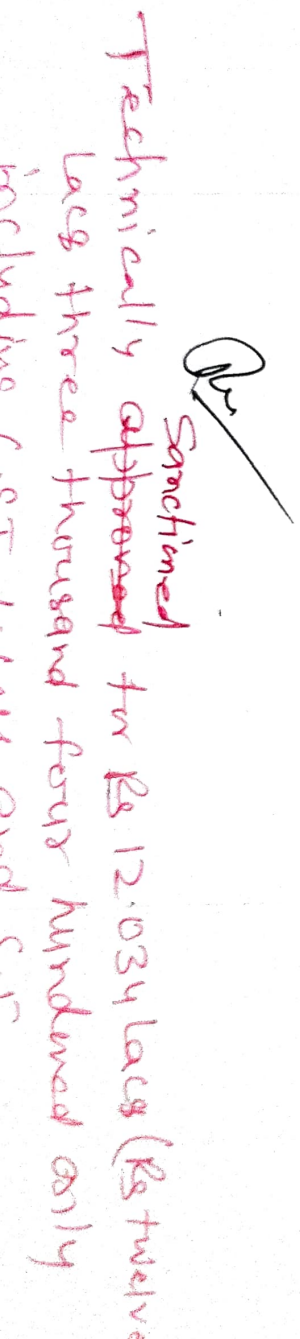 Sanctioned
Technically approved for Rs 12.034 Lacs (Rs twelve
Lacs three thousand four hundred only
including GST